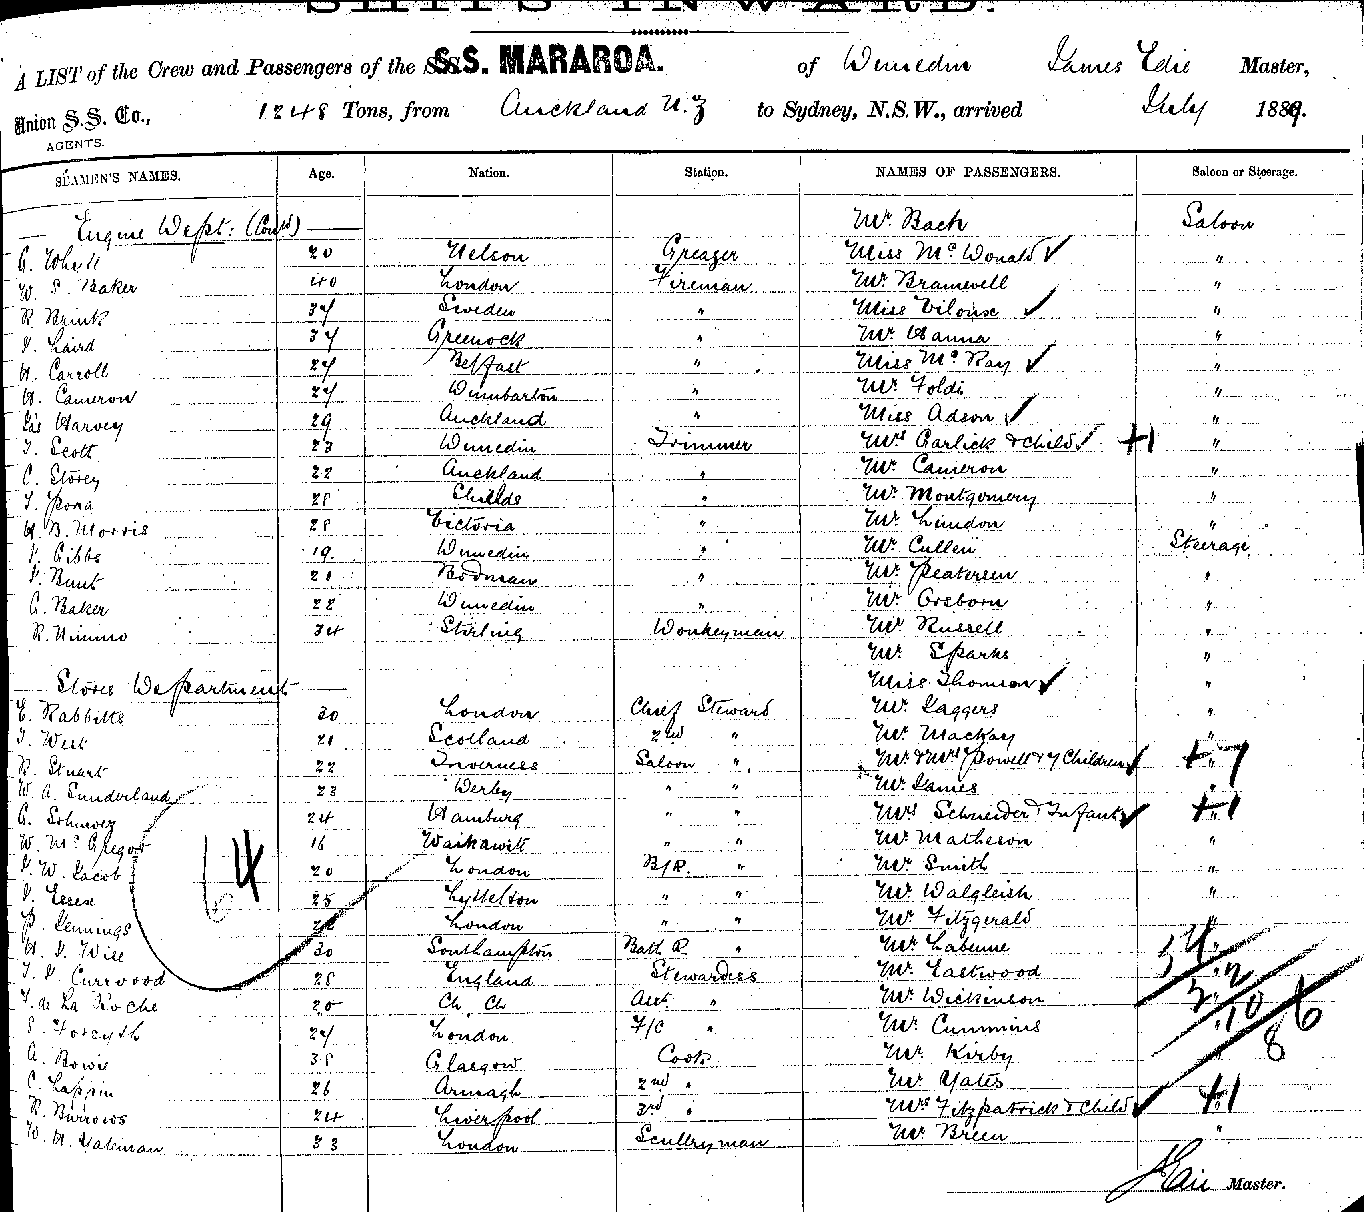 SHIPS INWARD.
A LIST of the Crew and Passengers of the S.S. MARAROA. of Dunedin James Edie Master,
Union S.S. Co., 1248 Tons, from Auckland N.Z to Sydney, N.S.W., arrived July 1889.
AGENTS.
SEAMEN'S NAMES. Age. Nation. Station. NAMES OF PASSENGERS. Saloon or Steerage.
Engine Dept: (Contd) Mr Bach Saloon
20 Nelson Greaser Miss McDonald "
W. Baker 40 London Fireman Mr Bramwell "
R Brink 34 Sweden " Miss "
J. Laird 37 Greenock " Mr Hanna "
H. Carroll 27 Belfast " Miss McKay "
H. Cameron 27 Dumbarton " Mr "
Jas Harvey 29 Auckland " Miss Adson "
T. Scott 23 Dunedin Trimmer Mrs Garlick & Child +1 "
C. Storey 22 Auckland " Mr Cameron "
28 " Mr Montgomery "
H. B. Morris 28 Victoria " Mr Lindon "
J. Gibbs 19. Dunedin " Mr Cullen Steerage
J. Bunt 21 Bodman " Mr Peatersen "
G. Baker 22 Dunedin " Mr Osborn "
R. Nimmo 34 Stirling Donkeyman Mr Russell "
Mr Sparks "
Stores Department Miss Thomson "
E. Rabbitts 30 London Chief Steward Mr Jaggers "
T. West 21 Scotland 2nd " Mr Mackay "
R. Stuart 22 Inverness Saloon " Mr & Mrs Powell & 7 Children +7 "
W. A. Sunderland 23 Derby " " Mr James
G. 24 Hamburg " " Mrs Schneider & Infant +1 "
W. McGregor 16 " " Mr Matheson "
J. W. Jacob 20 London B/R. " Mr Smith "
J. Essex 25 Lyttelton " " Mr Dalgleish "
P. Jennings London " " Mr Fitzgerald "
H. J. Wise 30 Southampton Bath R. " Mr Labenne
T. J. Curwood 28 England Stewardess Mr Eastwood
F. de La Roche 20 Ch. Ch Asst. " Mr Dickinson
S. Forsyth 27 London F/C " Mr Cummins
A. Bowie 38 Glasgow Cook Mr Kirby 86
C. Lappin 26 Armagh 2nd " Mr Yates
R. Burrows 24 Liverpool 3rd " Mrs Fitzpatrick & Child +1
W. H. Bateman 33 London Sculleryman Mr Breen "
64
Master.